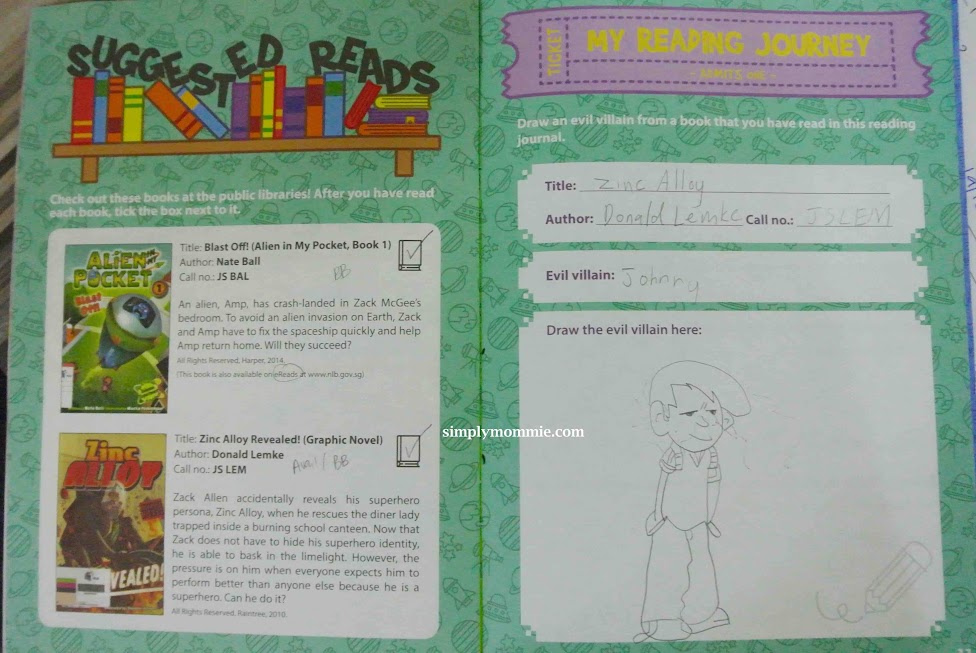 SUGGESTED READS
Check out these books at the public libraries! After you have read
each book, tick the box next to it.
ALIEN IN MY
POCKET
1
Blast Off!
Title: Blast Off! (Alien in My Pocket, Book 1)
Author: Nate Ball
Call no.: JS BAL
BB
An alien, Amp, has crash-landed in Zack McGee's
bedroom. To avoid an alien invasion on Earth, Zack
and Amp have to fix the spaceship quickly and help
Amp return home. Will they succeed?
All Rights Reserved, Harper, 2014.
(This book is also available on eReads at www.nlb.gov.sg)
Zinc
ALLOY
REVEALED!
Title: Zinc Alloy Revealed! (Graphic Novel)
Author: Donald Lemke
Call no.: JS LEM
Avail / BB
Zack Allen accidentally reveals his superhero
persona, Zinc Alloy, when he rescues the diner lady
trapped inside a burning school canteen. Now that
Zack does not have to hide his superhero identity,
he is able to bask in the limelight. However, the
pressure is on him when everyone expects him to
perform better than anyone else because he is a
superhero. Can he do it?
All Rights Reserved, Raintree, 2010.
TICKET
MY READING JOURNEY
~ ADMITS ONE ~
Draw an evil villain from a book that you have read in this reading
journal.
Title: Zinc Alloy
Author: Donald Lemke Call no.: JSLEM
Evil villain: Johnny
Draw the evil villain here:
simplymommie.com